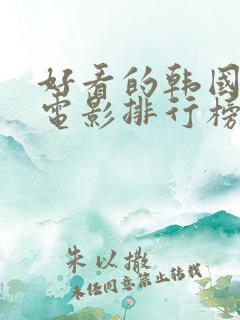 好看的韩国
电影排行榜
朱以撒
未经同意禁止转载